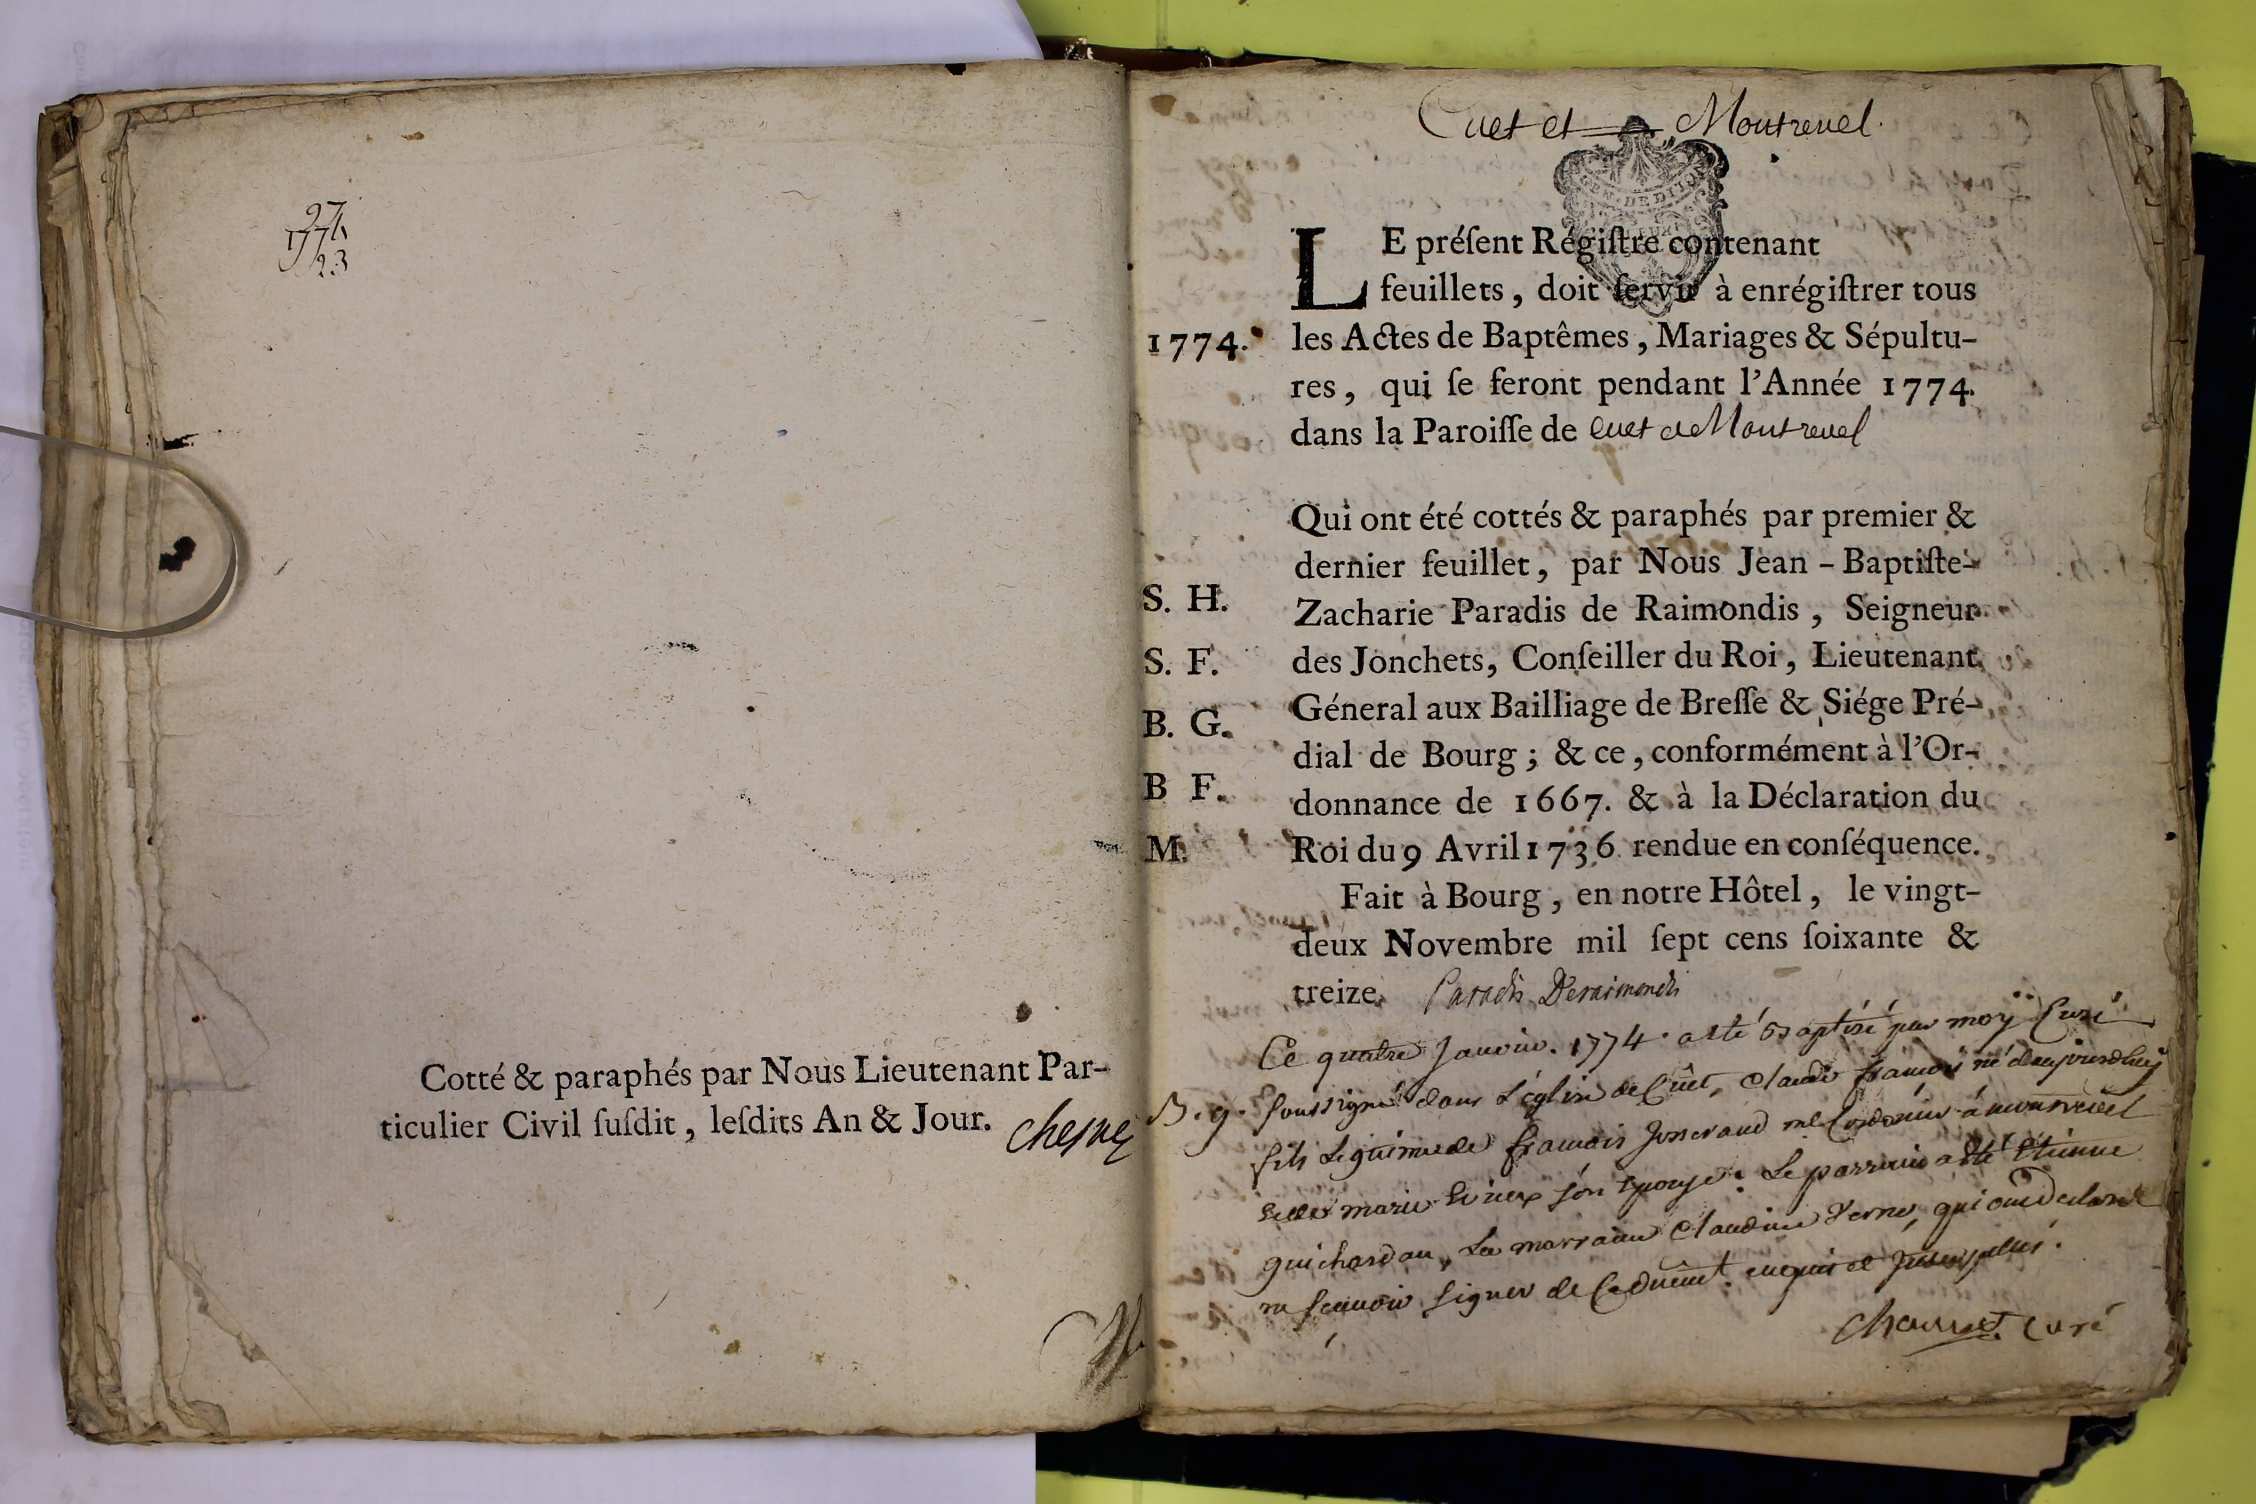 1774
23
Cotté & paraphés par Nous Lieutenant Par-
ticulier Civil ſuſdit, leſdits An & Jour. Chesne
Cuet et Montrevel.
GEN. DE DIJON
LE préſent Régiſtre contenant
feuillets, doit ſervir à enrégiſtrer tous
1774. les Actes de Baptêmes, Mariages & Sépultu-
res, qui ſe feront pendant l'Année 1774.
dans la Paroiſſe de Cuet de Montrevel
Qui ont été cottés & paraphés par premier &
dernier feuillet, par Nous Jean-Baptiſte-
S. H. Zacharie Paradis de Raimondis, Seigneur
S. F. des Jonchets, Conſeiller du Roi, Lieutenant
B. G. Géneral aux Bailliage de Breſſe & Siége Pré-
dial de Bourg; & ce, conformément à l'Or-
B F. donnance de 1667. & à la Déclaration du
M. Roi du 9 Avril 1736 rendue en conſéquence.
Fait à Bourg, en notre Hôtel, le vingt-
deux Novembre mil ſept cens ſoixante &
treize. Paradis Deraimondis
Ce quatre Janvier. 1774. a eté Baptisé par moÿ Curé
B. g. soussigné dans L'église de Cuet, Claude françois né d'aujourdhuÿ
fils Légitime de françois Joscrand me Cordonnier à montrevel
et de marie son Epouse. Le parrain a eté Etienne
guichardan, La marraine Claudine Verne, qui ont declaré
ne sçavoir signer de Ce duëment enquis et Interpellés.
Chaurset Curé